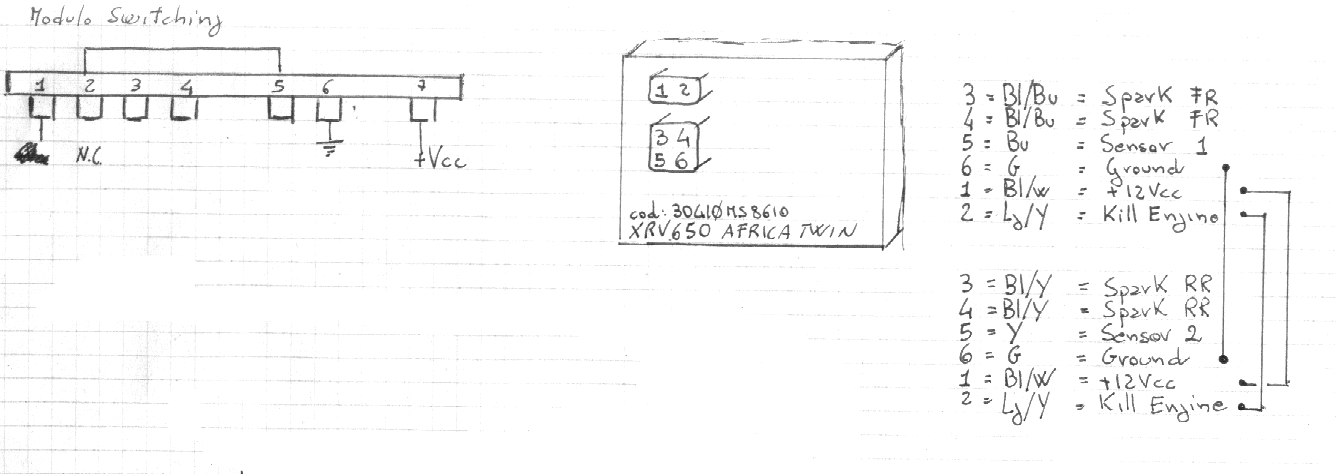 Modulo Switching
1 2 3 4 5 6 7
N.C.
+Vcc
1 2
3 4
5 6
cod: 30410MS8610
XRV650 AFRICA TWIN
3 = Bl/Bu = Spark FR
4 = Bl/Bu = Spark FR
5 = Bu = Sensor 1
6 = G = Ground
1 = Bl/W = +12Vcc
2 = Lg/Y = Kill Engine
3 = Bl/Y = Spark RR
4 = Bl/Y = Spark RR
5 = Y = Sensor 2
6 = G = Ground
1 = Bl/W = +12Vcc
2 = Lg/Y = Kill Engine